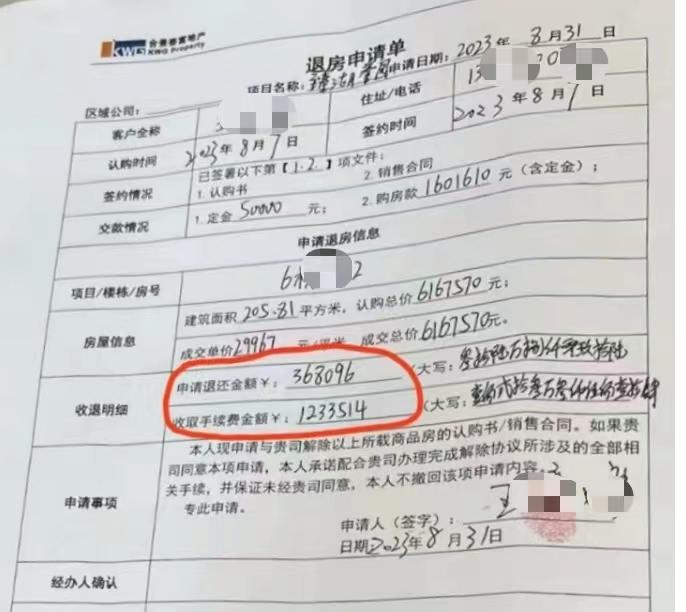 KWG 合景泰富地产
KWG Property
退房申请单
项目名称: 申请日期: 2023年8月31日
区域公司:
客户全称 住址/电话 13
认购时间 2023年8月7日 签约时间 2023年8月7日
签约情况 已签署以下第【1.2.】项文件:
1.认购书 2.销售合同
交款情况 1.定金50000元; 2.购房款1601610元(含定金);
申请退房信息
项目/楼栋/房号 6 2
房屋信息 建筑面积205.81平方米,认购总价6167570元;
成交单价29967元/平米,成交总价6167570元。
收退明细 申请退还金额¥:368096 (大写:叁拾陆万捌仟零玖拾陆
收取手续费金额¥:1233514 (大写:壹佰贰拾叁万叁仟伍佰壹拾肆
申请事项 本人现申请与贵司解除以上所载商品房的认购书/销售合同。如果贵
司同意本项申请,本人承诺配合贵司办理完成解除协议所涉及的全部相
关手续,并保证未经贵司同意,本人不撤回该项申请内容。
专此申请。
申请人(签字):
日期:2023年8月31日
经办人确认